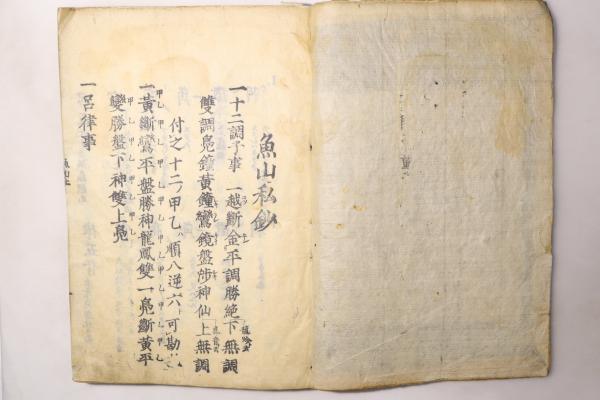 魚山私鈔
一十二調子事 一越斷金平調勝絶下無調
雙調鳧鐘黄鐘鸞鏡盤渉神仙上無調
付之十二ツノ甲乙順八逆六可勘
一黄斷鸞平盤勝神龍鳳雙一鳧斷黄平
甲乙甲乙甲乙
鸞勝盤下神雙上鳧
一呂律事
魚山上